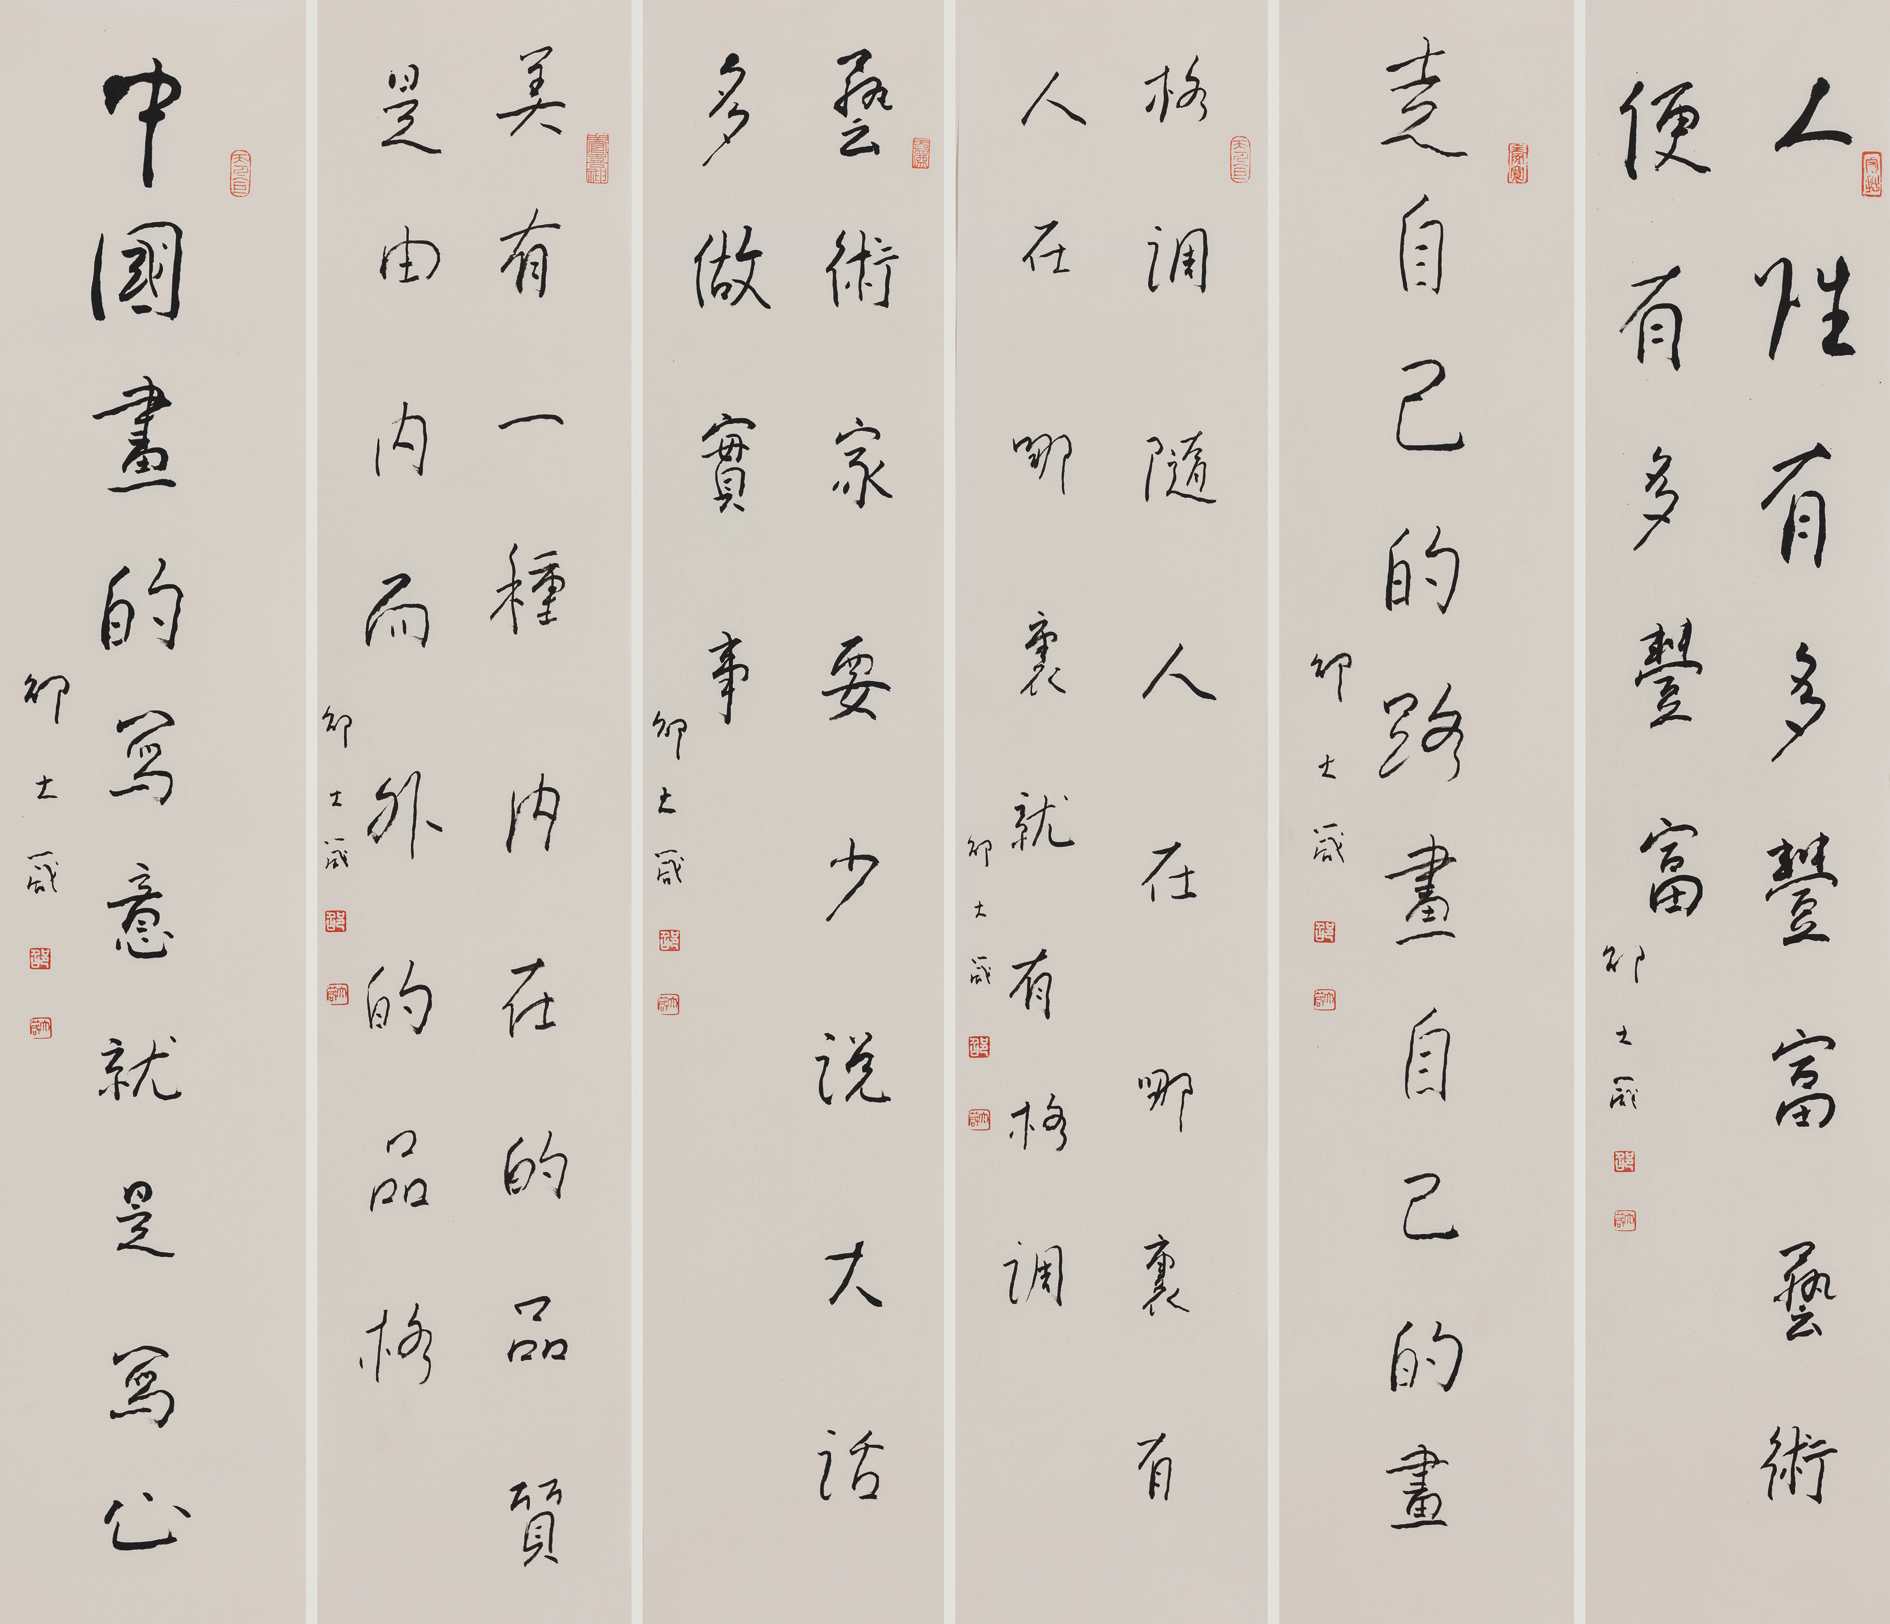 人性有多豐富藝術
便有多豐富
邵大箴
走自己的路畫自己的畫
邵大箴
格調隨人在哪裏有
人在哪裏就有格調
邵大箴
藝術家要少説大話
多做實事
邵大箴
美有一種内在的品質
是由内而外的品格
邵大箴
中國畫的寫意就是寫心
邵大箴